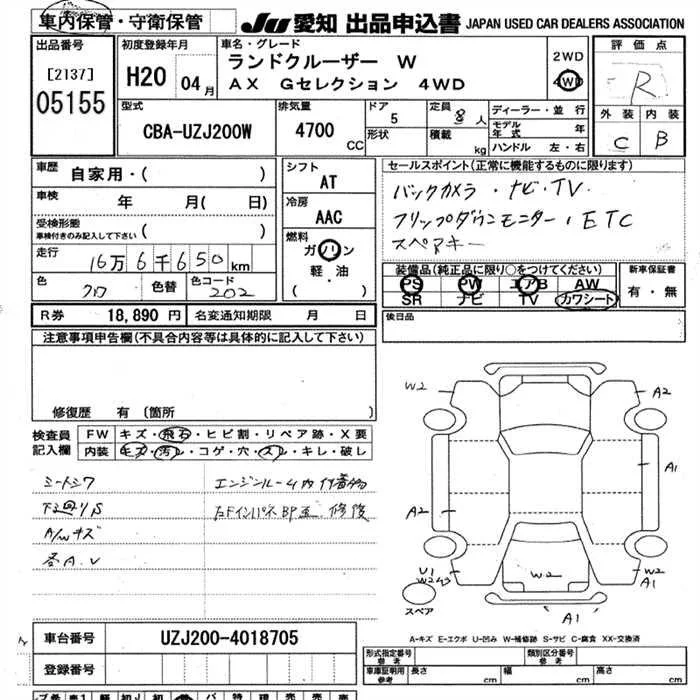 車内保管・守衛保管
JU愛知 出品申込書 JAPAN USED CAR DEALERS ASSOCIATION
出品番号
[2137]
05155
初度登録年月
H20 04月
車名・グレード
ランドクルーザー W
AX Gセレクション 4WD
2WD
4WD
評価点
R
外装 内装
C B
型式
CBA-UZJ200W
排気量
4700 CC
ドア
5
形状
定員
8人
積載 kg
ディーラー・並行
モデル年式 年
ハンドル 左・右
車歴
自家用・( )
車検 年 月( 日)
受検形態
車検付きのみ記入して下さい ( )
走行
16万6千650km
色
クロ
色替
色コード
202
シフト
AT
冷房
AAC
燃料
ガソリン
軽・油
( )
セールスポイント(正常に機能するものに限ります)
バックカメラ・ナビ・TV.
フリップダウンモニター、ETC
スペアキー
装備品(純正品に限り○をつけてください)
PS PW エアB AW
SR ナビ TV カワシート
新車保証書
有・無
R券 18,890円 名変通知期限 月 日
後日品
注意事項申告欄(不具合内容等は具体的に記入して下さい)
修復歴 有〔箇所 〕
検査員記入欄
FW キズ・飛石・ヒビ割・リペア跡・X要
内装 キズ・汚レ・コゲ・穴・スレ・キレ・破レ
シートシワ
下廻りS
A/Wキズ
各A.V
エンジンルーム内付着物
右ドインパネBP歪 修復
W2
A2
A1
A2
U1
W2
W2
W2
A1
A1
スペア
A-キズ E-エクボ U-凹み W-補修跡 S-サビ C-腐食 XX-交換済
車台番号 UZJ200-4018705
登録番号
形式指定番号
参考
類別区分番号
参考
車庫証明用
参考
長さ cm 幅 cm 高さ cm